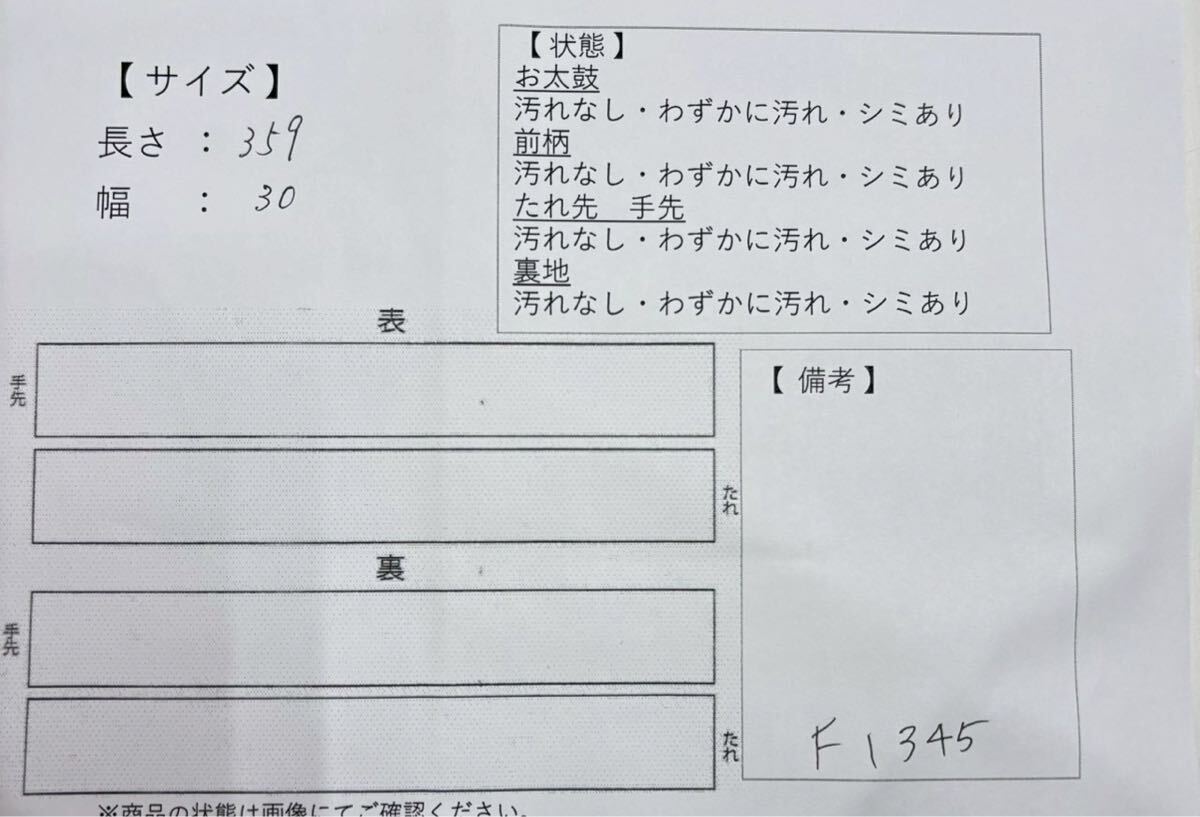 【サイズ】
長さ ： 359
幅 ： 30
【 状態 】
お太鼓
汚れなし・わずかに汚れ・シミあり
前柄
汚れなし・わずかに汚れ・シミあり
たれ先 手先
汚れなし・わずかに汚れ・シミあり
裏地
汚れなし・わずかに汚れ・シミあり
表
手先
たれ
裏
手先
たれ
【 備考 】
F1345
※商品の状態は画像にてご確認ください。